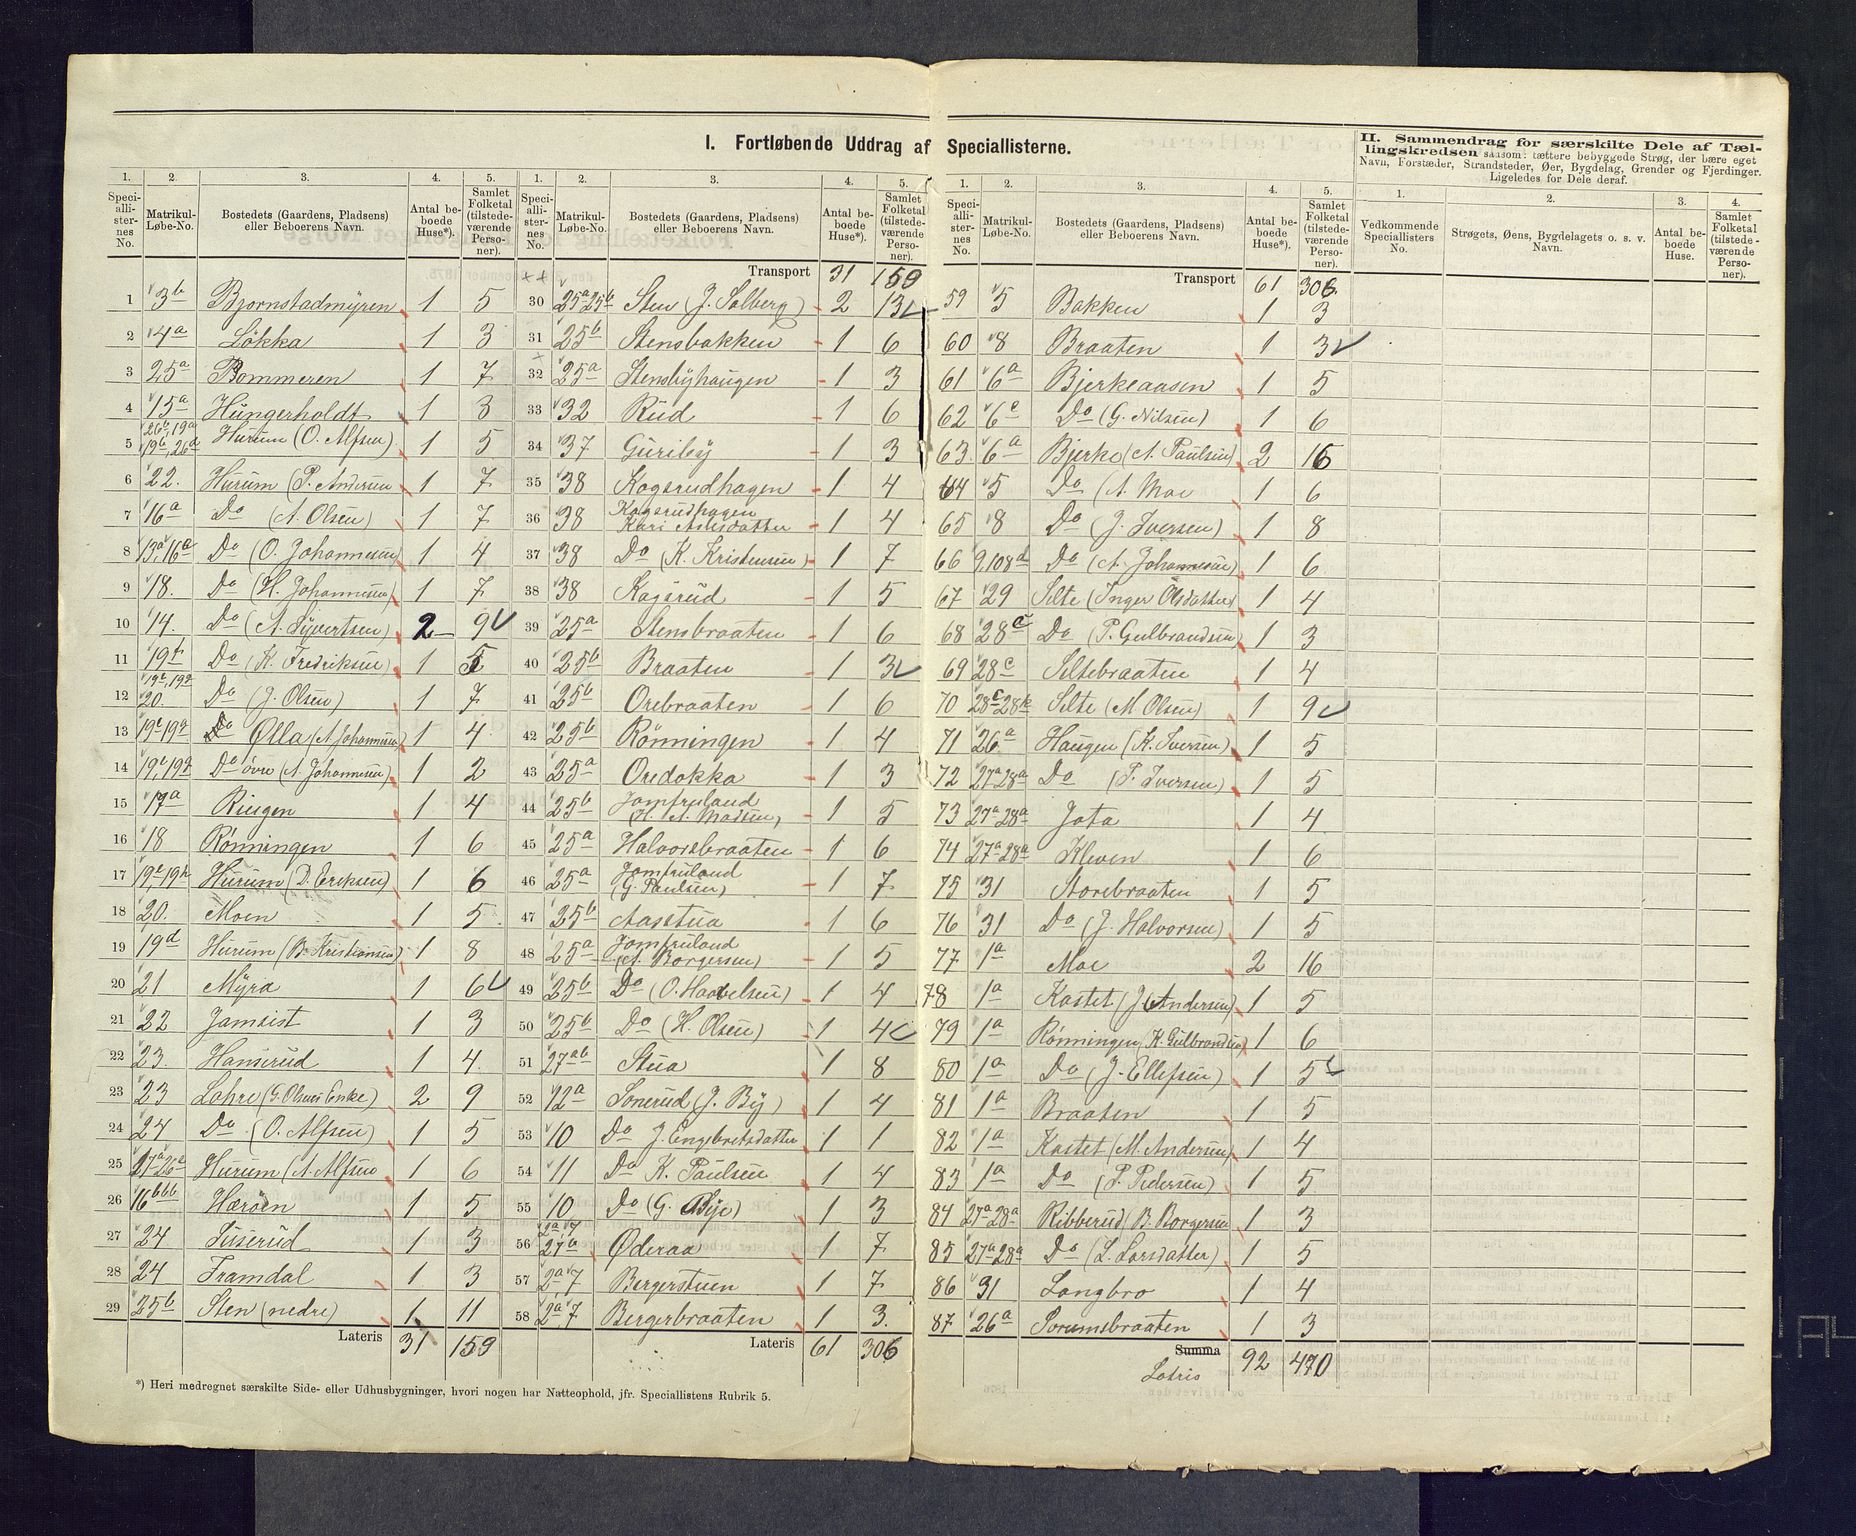 I. Fortløbende Uddrag af Speciallisterne.
II. Sammendrag for særskilte Dele af Tællingskredsen saasom: tættere bebyggede Strøg, der bære eget
Navn, Forstæder, Strandsteder, Øer, Bygdelag, Grender og Fjerdinger.
Ligeledes for Dele deraf.
1. 2. 3. 4. 5. 1. 2. 3. 4. 5. 1. 2. 3. 4. 5. 1. 2. 3. 4.
Speciallisternes No. Matrikul-Løbe-No. Bostedets (Gaardens, Pladsens) eller Beboerens Navn. Antal beboede Huse*). Samlet Folketal (tilstedeværende Personer).
Speciallisternes No. Matrikul-Løbe-No. Bostedets (Gaardens, Pladsens) eller Beboerens Navn. Antal beboede Huse*). Samlet Folketal (tilstedeværende Personer).
Speciallisternes No. Matrikul-Løbe-No. Bostedets (Gaardens, Pladsens) eller Beboerens Navn. Antal beboede Huse*). Samlet Folketal (tilstedeværende Personer).
Vedkommende Speciallisters No. Strøgets, Øens, Bygdelagets o. s. v. Navn. Antal beboede Huse. Samlet Folketal (tilstedeværende Personer).
1 3b Bjørnstadmyren 1 5
2 4a Løkka 1 3
3 25a Bommeren 1 7
4 15a Hungerholdt 1 3
5 26b, 19a 19b, 26d Hurum (O. Alfsen) 1 5
6 22. Hurum (P. Andersen 1 7
7 16a Do (A. Olsen) 1 7
8 13a 16c Do (O. Johannesen) 1 4
9 18. Do (H. Johannesen) 1 7
10 14. Do (A. Syvertsen) 2 9
11 19f Do (K. Fredriksen) 1 5
12 20. Do (J. Olsen) 1 7
13 19c 19a Do Ølla (A. Johannesen) 1 4
14 Do øvre (A. Johannesen) 1 2
15 17a Ringen 1 4
16 18 Rønningen 1 6
17 19c, 19h Hurum (D. Eriksen) 1 6
18 20. Moen 1 5
19 19d Hurum (B. Kristiansen) 1 8
20 21 Myra 1 6
21 22 Jamsist 1 3
22 23. Hanserud 1 4
23 23 Lohre (G. Olsens Enke) 2 9
24 24 Do (O. Alfsen) 1 5
25 Hurum (A. Alfsen 1 6
26 16bbb Hæröen 1 5
27 24 Suserud 1 3
28 24 Framdal 1 3
29 25b Sten (nedre) 1 11
Lateris 31 159
Transport 31 159
30 25a 25b Sten (J. Solberg) 2 13
31 25b Stensbakken 1 6
32 25a Stensbyhaugen 1 3
33 32 Rud 1 6
34 37 Guriby 1 3
35 38 Kogsrudhagen 1 4
36 38 Kogsrudhagen Kari Aslesdatter 1 4
37 38 Do (K. Kristensen) 1 7
38 38 Kogsrud 1 5
39 25a Stensbraaten 1 6
40 25b Braaten 1 3
41 25b Orebraaten 1 6
42 25b Rönningen 1 4
43 25a Oredokka 1 3
44 25b Jomfruland (H. A. Madsen) 1 5
45 25a Halvorsbraaten 1 6
46 25a Jomfruland (G. Paulsen) 1 7
47 25b Aasstua 1 6
48 25a Jomfruland (A. Borgersen) 1 5
49 25b Do (O. Haavelsen) 1 4
50 25b Do (H. Olsen) 1 4
51 27ab Stua 1 8
52 12a Sonerud (J. By) 1 4
53 10 Do J. Engebretsdatter 1 1
54 11 Do K. Paulsen 1 4
55 10 Do (G. Bye) 1 3
56 2a 7 27b Øderaa 1 7
57 2a 7 Bergerstuen 1 7
58 2a 7 Bergerbraaten 1 3.
Lateris 61 306
Transport 61 306
59 5 Bakken 1 3
60 8 Braaten 1 3
61 6a Bjerkeaasen 1 5
62 6c Do (G. Nilsen) 1 6
63 6a Bjerke (A. Paulsen) 2 16
64 5 Do (A. Moe 1 6
65 8 Do (J. Iversen) 1 8
66 9, 108d Do (A. Johannesen) 1 6
67 29 Silte (Inger Olsdatter) 1 4
68 28c Do (P. Gulbrandsen) 1 3
69 28c Siltebraaten 1 4
70 28c 28k Silte (M. Olsen) 1 9
71 26a Haugen (K. Iversen) 1 5
72 27a 28a Do (P. Iversen) 1 5
73 27a 28a Jota 1 4
74 27a 28a Kleven 1 6
75 31 Storebraaten 1 5
76 31 Do (J. Halvorsen) 1 5
77 1a Moe 2 16
78 1a Kastet (J. Andersen) 1 5
79 1a Rønningen (K. Gulbrandsen) 1 6
80 1a Do (J. Ellefsen) 1 5
81 1a Braaten 1 5
82 1a Kastet (M. Andersen) 1 4
83 1a Do (P. Pedersen) 1 5
84 27a 28a Ribberud, B. Borgersen 1 3
85 27a 28a Do (L. Larsdatter) 1 5
86 31 Langbro 1 4
87 26a Sorumsbraaten 1 3
Summa
Latris 92 470
*) Heri medregnet særskilte Side- eller Udhusbygninger, hvori nogen har Natteophold, jfr. Speciallistens Rubrik 5.